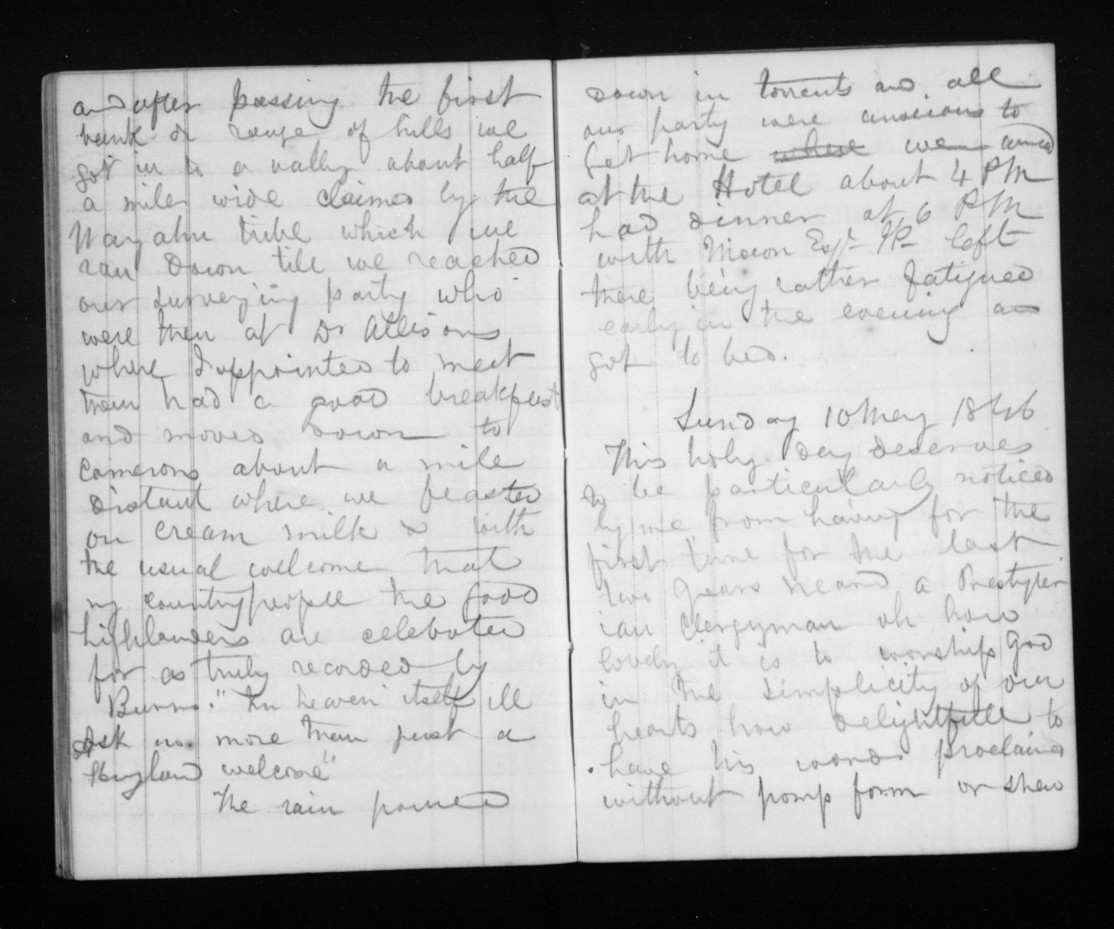 and after passing the first
bank or range of hills we
got in to a vally about half
a mile wide claimed by the
tribe which we
ran down till we reached
our surveying party who
were then at Dr Allisons
where I appointed to meet
them had a good breakfast
and moved down to
Camerons about a mile
distant where we feasted
on cream milk & with
the usual welcome that
my countrypeople the good
highlanders are celebrated
for as truly recorded by
Burns. "In heaven itself ill
Ask no more than just a
Highland welcome"
The rain poured
down in torrents and all
our party were anxious to
Get home where we arrived
at the Hotel about 4 PM
had dinner at 6 PM
with Moron Esqr left
there being rather fatigued
early in the evening and
got to bed.
Sunday 10 May 1846
This holy Day deserves
to be particularly noticed
by me from having for the
first time for the last
two years heard a Presbyter
ian Clergyman oh how
lovely it is to worship God
in the simplicity of our
hearts how delightfull to
have his words proclaimed
without pomp form or shew